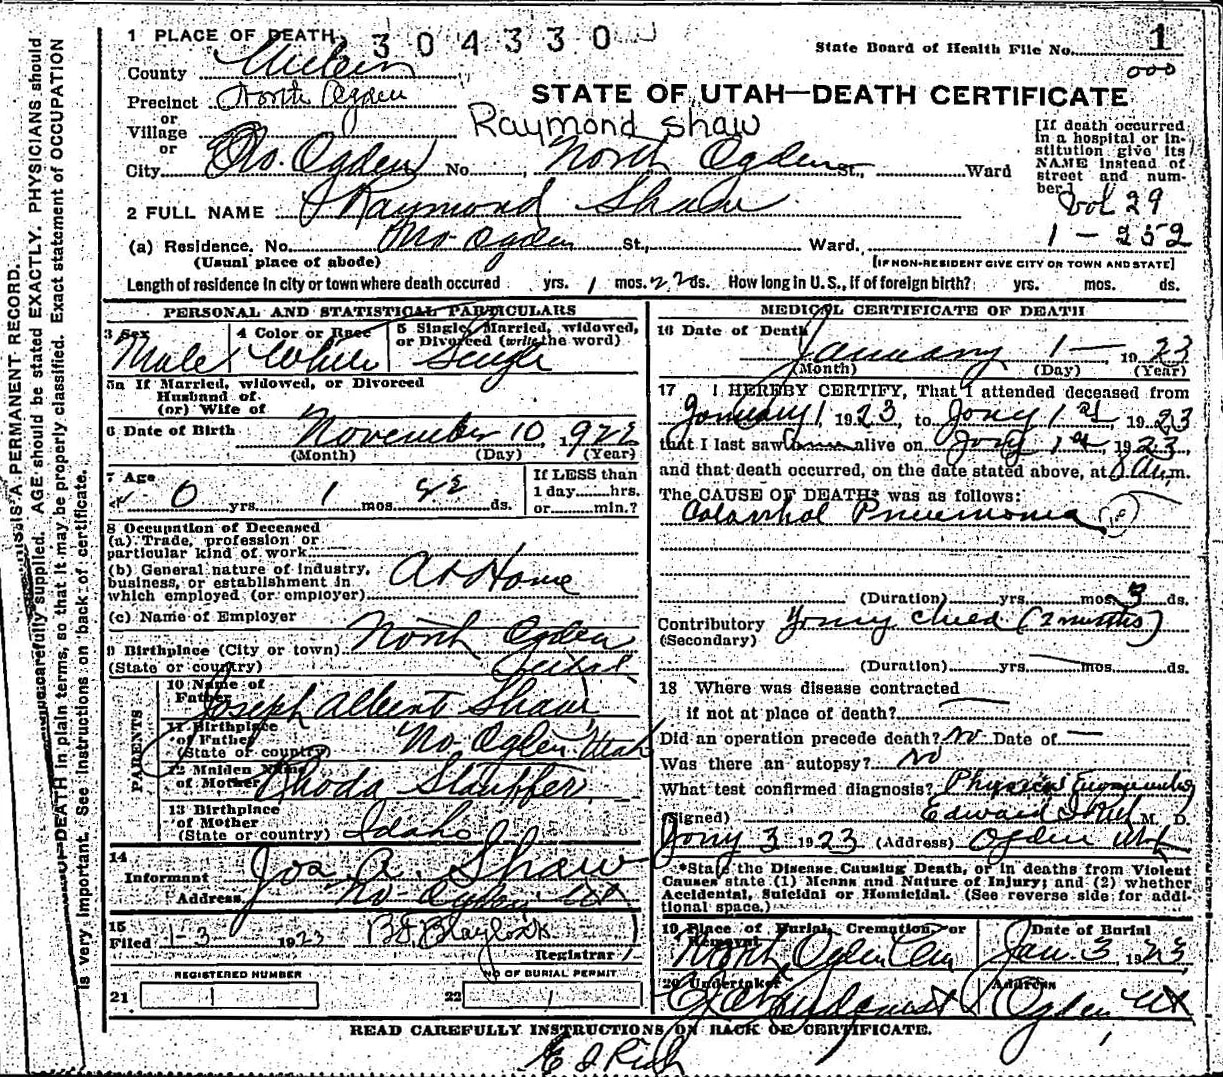 1 PLACE OF DEATH 304330
State Board of Health File No. 1
000
County
Precinct North Ogden
or
Village
or
STATE OF UTAH—DEATH CERTIFICATE
Raymond Shaw
City No. Ogden No. , North Ogden St., Ward
[If death occurred in a hospital or institution give its NAME instead of street and number.]
2 FULL NAME Raymond Shaw
Vol 29
1 - 252
(a) Residence. No. No. Ogden St., Ward,
(Usual place of abode)
[IF NON-RESIDENT GIVE CITY OR TOWN AND STATE]
Length of residence in city or town where death occured yrs. 1 mos. 22 ds. How long in U. S., if of foreign birth? yrs. mos. ds.
PERSONAL AND STATISTICAL PARTICULARS
3 Sex
Male
4 Color or Race
White
5 Single, Married, widowed, or Divorced (write the word)
Single
5a If Married, widowed, or Divorced
Husband of
(or) Wife of
6 Date of Birth November 10, 1922
(Month) (Day) (Year)
7 Age
0 yrs. 1 mos. 22 ds.
If LESS than
1 day hrs.
or min.?
8 Occupation of Deceased
(a) Trade, profession or
particular kind of work
(b) General nature of industry,
business, or establishment in
which employed (or employer)
At Home
(c) Name of Employer
9 Birthplace (City or town) North Ogden
(State or country) Utah
PARENTS
10 Name of
Father Joseph Albert Shaw
11 Birthplace
of Father
(State or country) No. Ogden, Utah
12 Maiden Name
of Mother Rhoda Stauffer
13 Birthplace
of Mother
(State or country) Idaho
14
Informant Jos. A. Shaw
Address No. Ogden, Ut
15
Filed 1-3 1923
Registrar
REGISTERED NUMBER
21 1
NO OF BURIAL PERMIT
22 1
MEDICAL CERTIFICATE OF DEATH
16 Date of Death
January 1 — , 1923
(Month) (Day) (Year)
17 I HEREBY CERTIFY, That I attended deceased from
January 1, 1923, to Jany 1st, 1923
that I last saw alive on Jany 1st, 1923
and that death occurred, on the date stated above, at 8 a.m.
The CAUSE OF DEATH* was as follows:
Catarrhal Pneumonia
(Duration) yrs. mos. 3 ds.
Contributory Young child (2 months)
(Secondary)
(Duration) yrs. mos. ds.
18 Where was disease contracted
if not at place of death?
Did an operation precede death? No Date of —
Was there an autopsy? No
What test confirmed diagnosis? Physical
(Signed) Edward I Rich M. D.
Jany 3 1923 (Address) Ogden Utah
*State the Disease Causing Death, or in deaths from Violent
Causes state (1) Means and Nature of Injury; and (2) whether
Accidental, Suicidal or Homicidal. (See reverse side for additional space.)
19 Place of Burial, Cremation, or
Removal
North Ogden Cem
Date of Burial
Jan. 3, 1923
20 Undertaker
Address
Ogden Ut
READ CAREFULLY INSTRUCTIONS ON BACK OF CERTIFICATE.
E I Rich
IS A PERMANENT RECORD.
carefully supplied. AGE should be stated EXACTLY. PHYSICIANS should
OF DEATH in plain terms, so that it may be properly classified. Exact statement of OCCUPATION
is very important. See instructions on back of certificate.